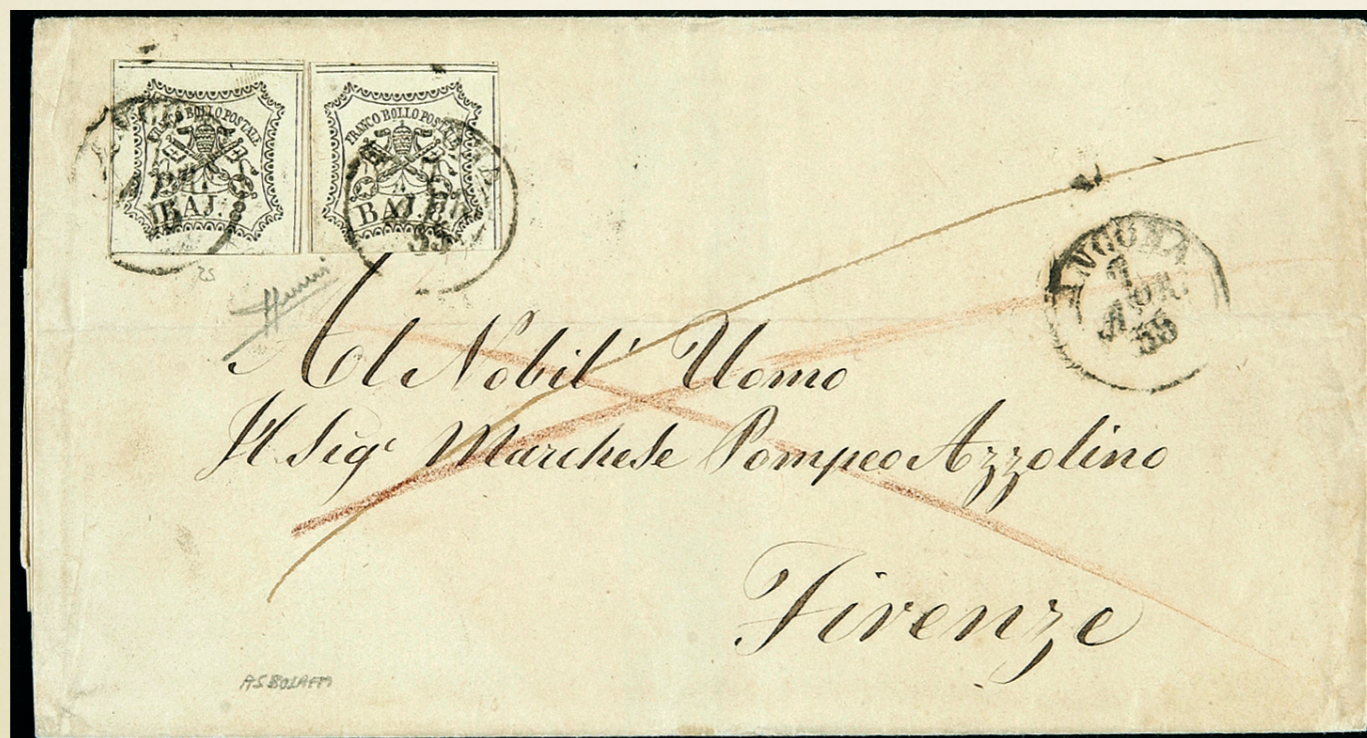 FRANCO BOLLO POSTALE
BAJ.
FRANCO BOLLO POSTALE
BAJ. 8
55
ANCONA
7
55
Al Nobil' Uomo
Il Sigr Marchese Pompeo Azzolino
Firenze
ASBOLAFFI